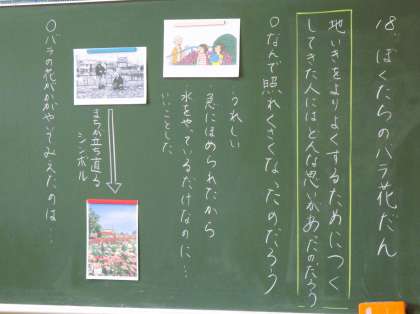 18.ぼくたちのバラ花だん
地いきをよりよくするためにつく
してきた人にはどんな思いがあったのだろう
○なんで照れくさくなったのだろう
うれしい
急にほめられたから
水をやっているだけなのに…
いいことした
まちが立ち直る
シンボル
○バラの花がかがやいてみえたのは…